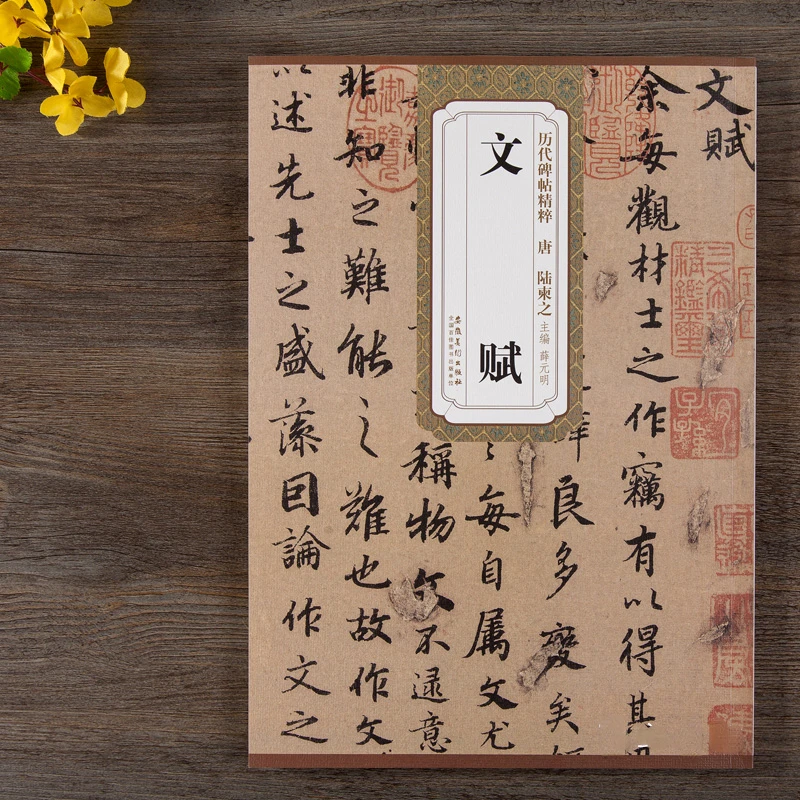 文賦
余每觀材士之作竊有以得其
良多變矣
每自屬文尤
稱物文不逮意
非知之難能之難也故作文
以述先士之盛藻因論作文之
历代碑帖精粹 唐 陆柬之 主编 薛元明
文赋
安徽美术出版社
全国百佳图书出版单位